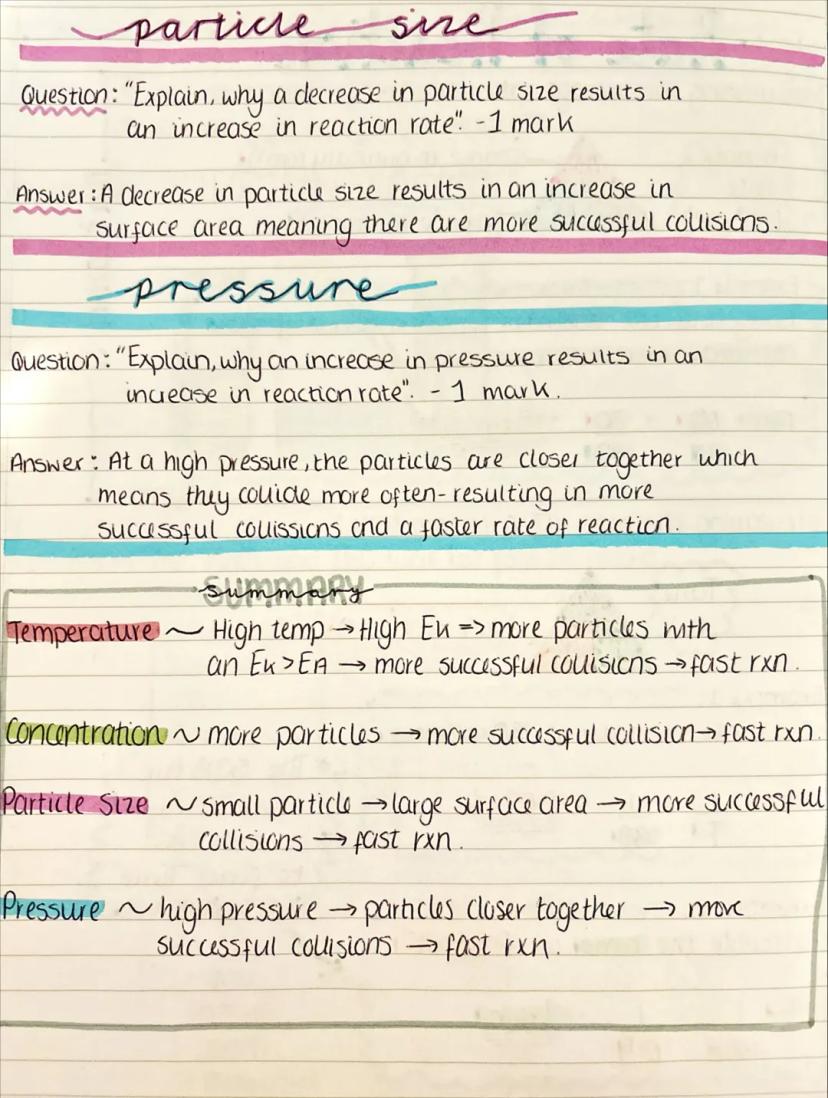 particle size
Question: "Explain, why a decrease in particle size results in
an increase in reaction rate". -1 mark
Answer: A decrease in particle size results in an increase in
surface area meaning there are more successful collisions.
pressure
Question: "Explain, why an increase in pressure results in an
increase in reaction rate". - 1 mark.
Answer: At a high pressure, the particles are closer together which
means they collide more often - resulting in more
successful collissions and a faster rate of reaction.
summary
Temperature ~ High temp → High Ek => more particles with
an Ek > EA → more successful collisions → fast rxn.
Concentration ~ more particles → more successful collision → fast rxn.
Particle Size ~ small particle → large surface area → more successful
collisions → fast rxn.
Pressure ~ high pressure → particles closer together → more
successful collisions → fast rxn.